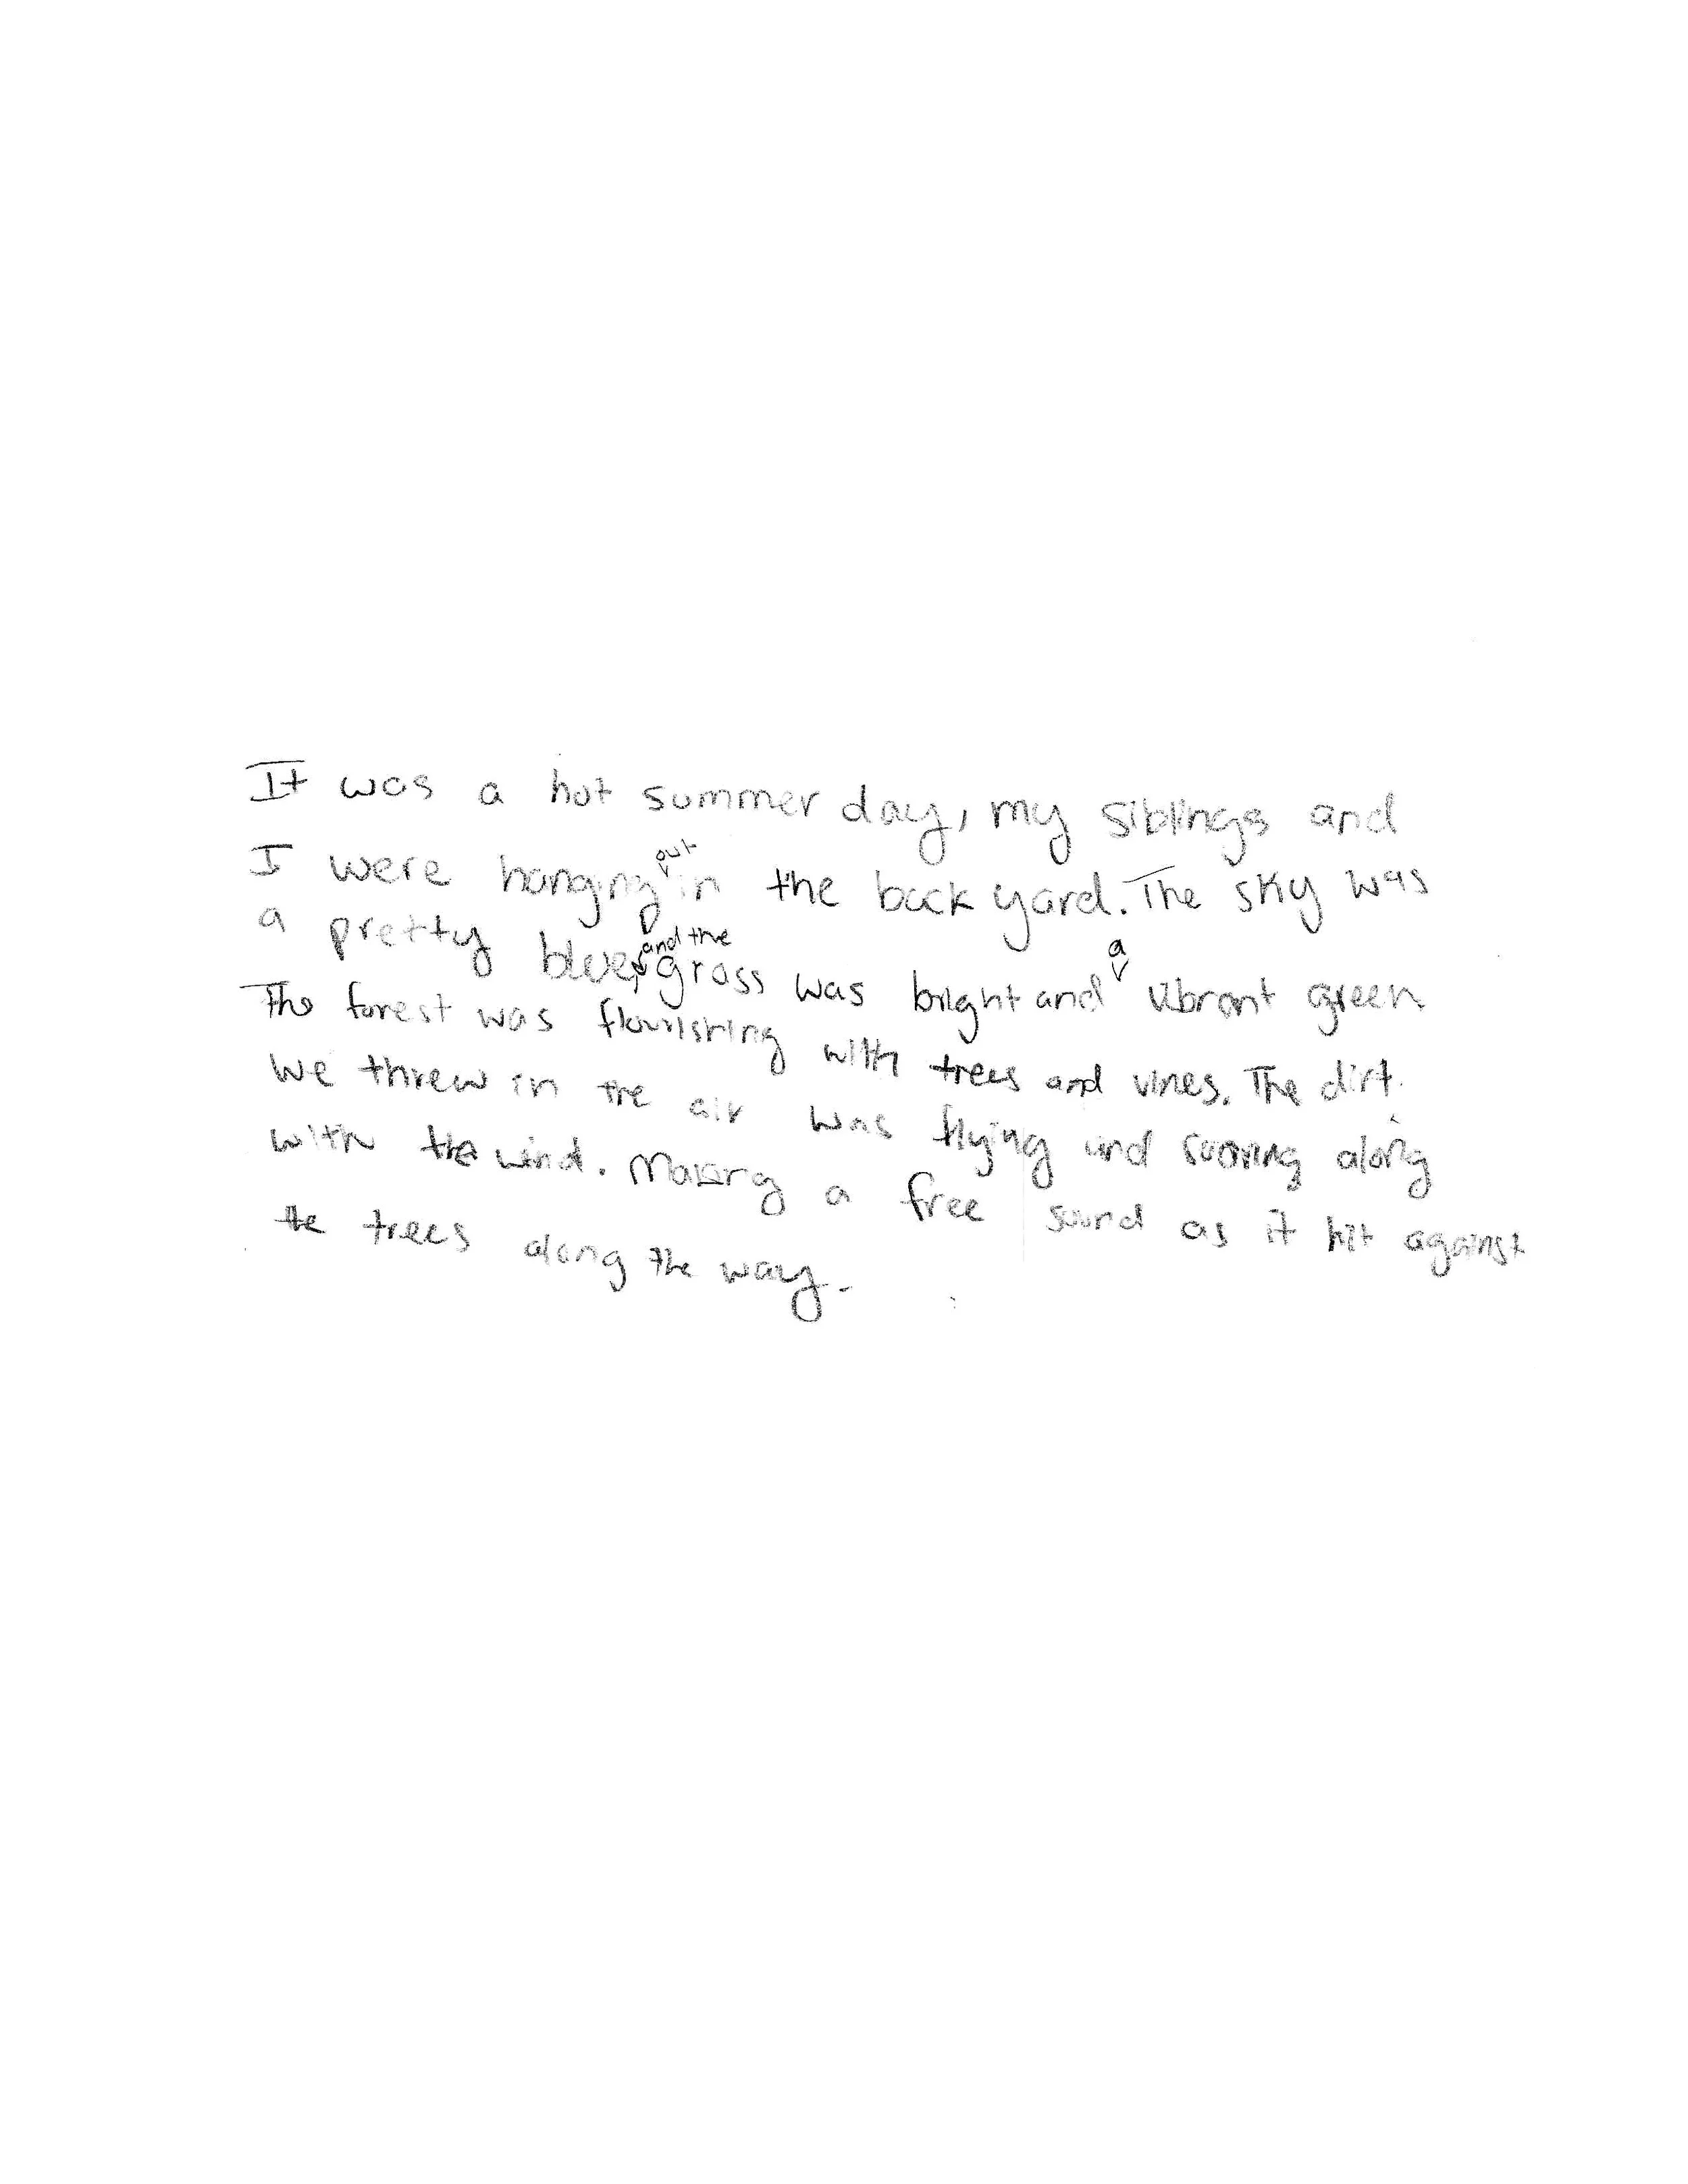 It was a hot summer day, my siblings and
I were hanging out in the back yard. The sky was
a pretty blue, and the grass was bright and a vibrant green
The forest was flourishing with trees and vines. The dirt
we threw in the air was flying and soaring along
with the wind. Making a free sound as it hit against
the trees along the way.